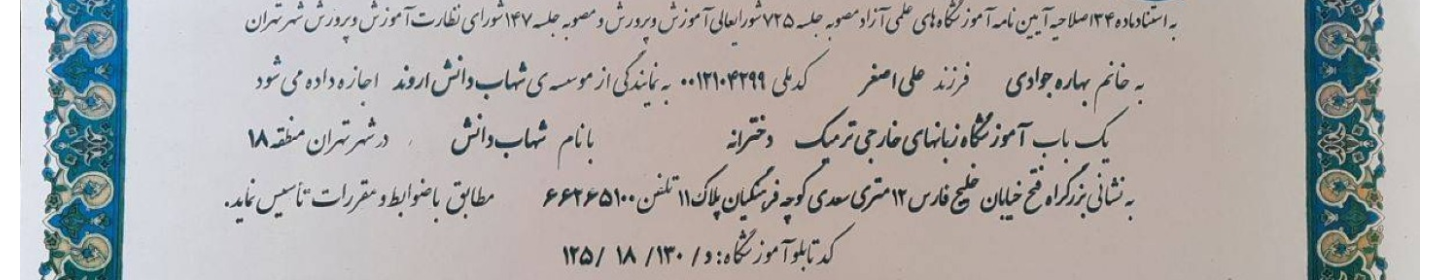 به استناد ماده ۳۴ اصلاحیه آیین نامه آموزشگاه های علمی آزاد مصوبه جلسه ۷۲۵ شورایعالی آموزش و پرورش و مصوبه جلسه ۱۴۷ شورای نظارت آموزش و پرورش شهر تهران
به خانم بهاره جوادی فرزند علی اصغر کد ملی ۰۰۱۲۱۰۴۲۹۹ به نمایندگی از موسسه ی شهاب دانش اروند اجازه داده می شود
یک باب آموزشگاه زبانهای خارجی ترمیک دخترانه با نام شهاب دانش در شهر تهران منطقه ۱۸
به نشانی بزرگراه فتح خیابان خلیج فارس ۱۲ متری سعدی کوچه فرهنگیان پلاک ۱۱ تلفن ۶۶۲۶۵۱۰۰ مطابق با ضوابط و مقررات تأسیس نماید.
کد تابلو آموزشگاه: و / ۱۳۰ / ۱۸ / ۱۲۵